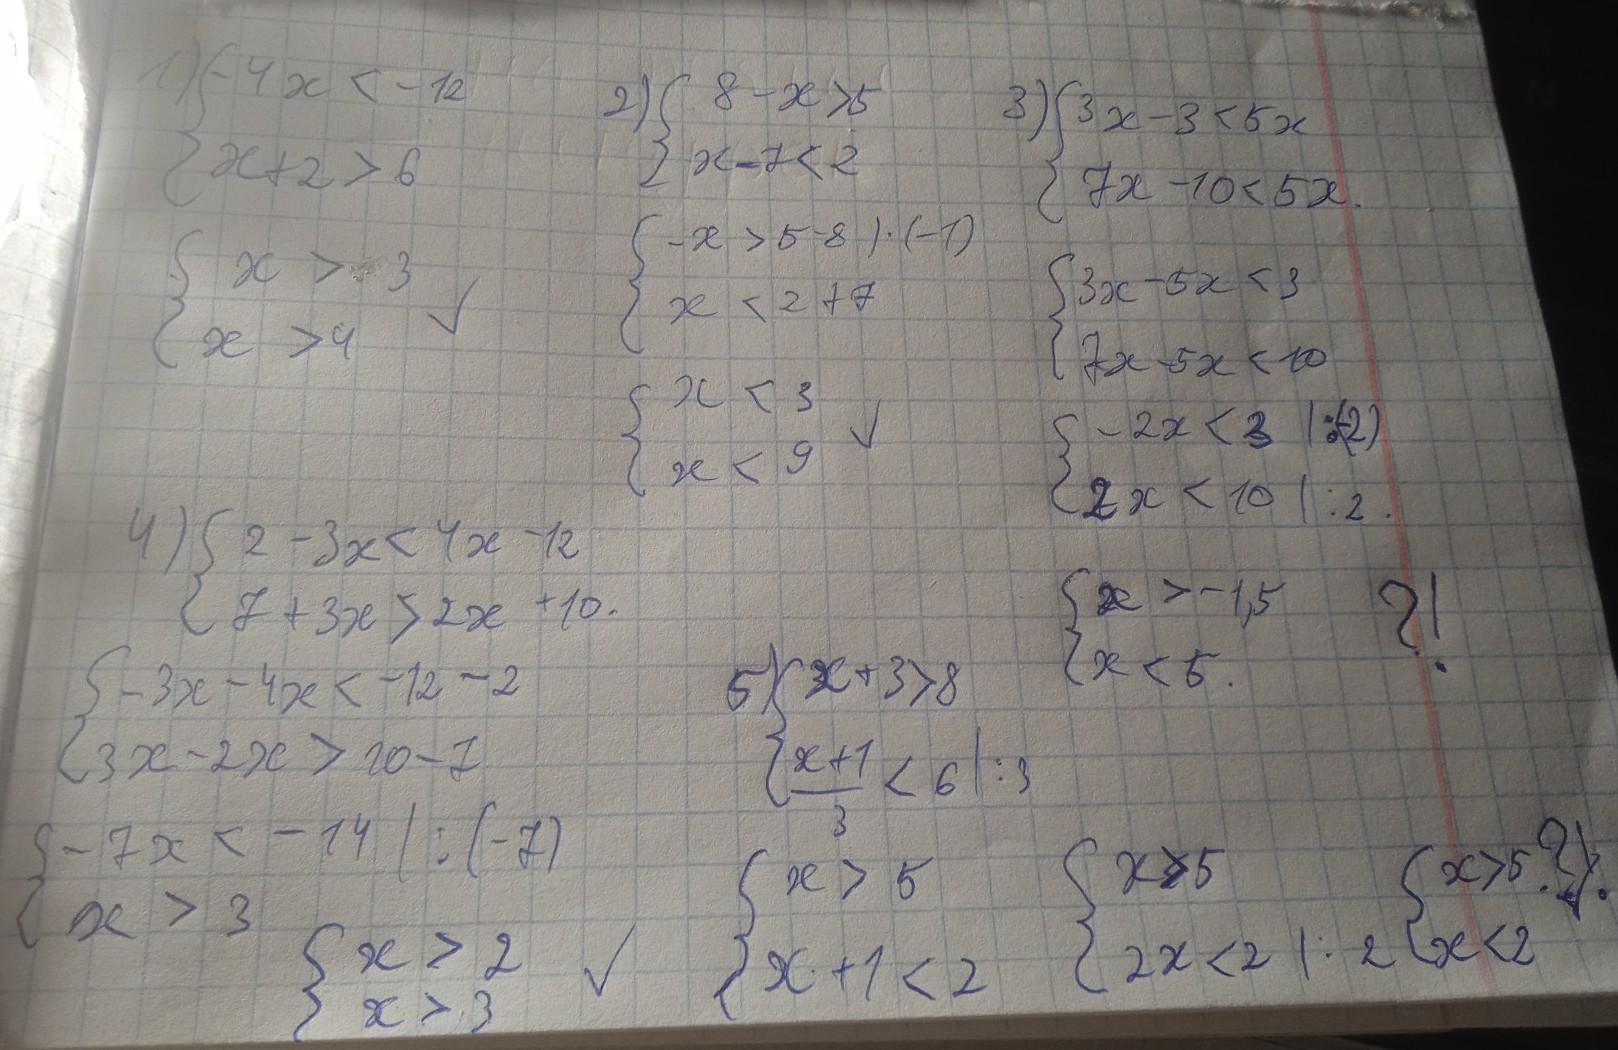 1) { -4x < -12
x+2 > 6
{ x > 3
x > 4 ✓
2) { 8 - x > 5
x - 7 < 2
{ -x > 5-8 | · (-1)
x < 2 + 7
{ x < 3
x < 9 ✓
3) { 3x - 3 < 5x
7x - 10 < 5x.
{ 3x - 5x < 3
7x - 5x < 10
{ -2x < 3 | :(-2)
2x < 10 | : 2.
{ x > -1,5
x < 5. ?!
4) { 2 - 3x < 4x - 12
7 + 3x > 2x + 10.
{ -3x - 4x < -12 - 2
3x - 2x > 10 - 7
{ -7x < -14 | : (-7)
x > 3
{ x > 2
x > 3 ✓
5) { x + 3 > 8
x+1/3 < 6 | : 3
{ x > 5
x + 1 < 2
{ x > 5
2x < 2 | : 2
{ x > 5 ?!
x < 2